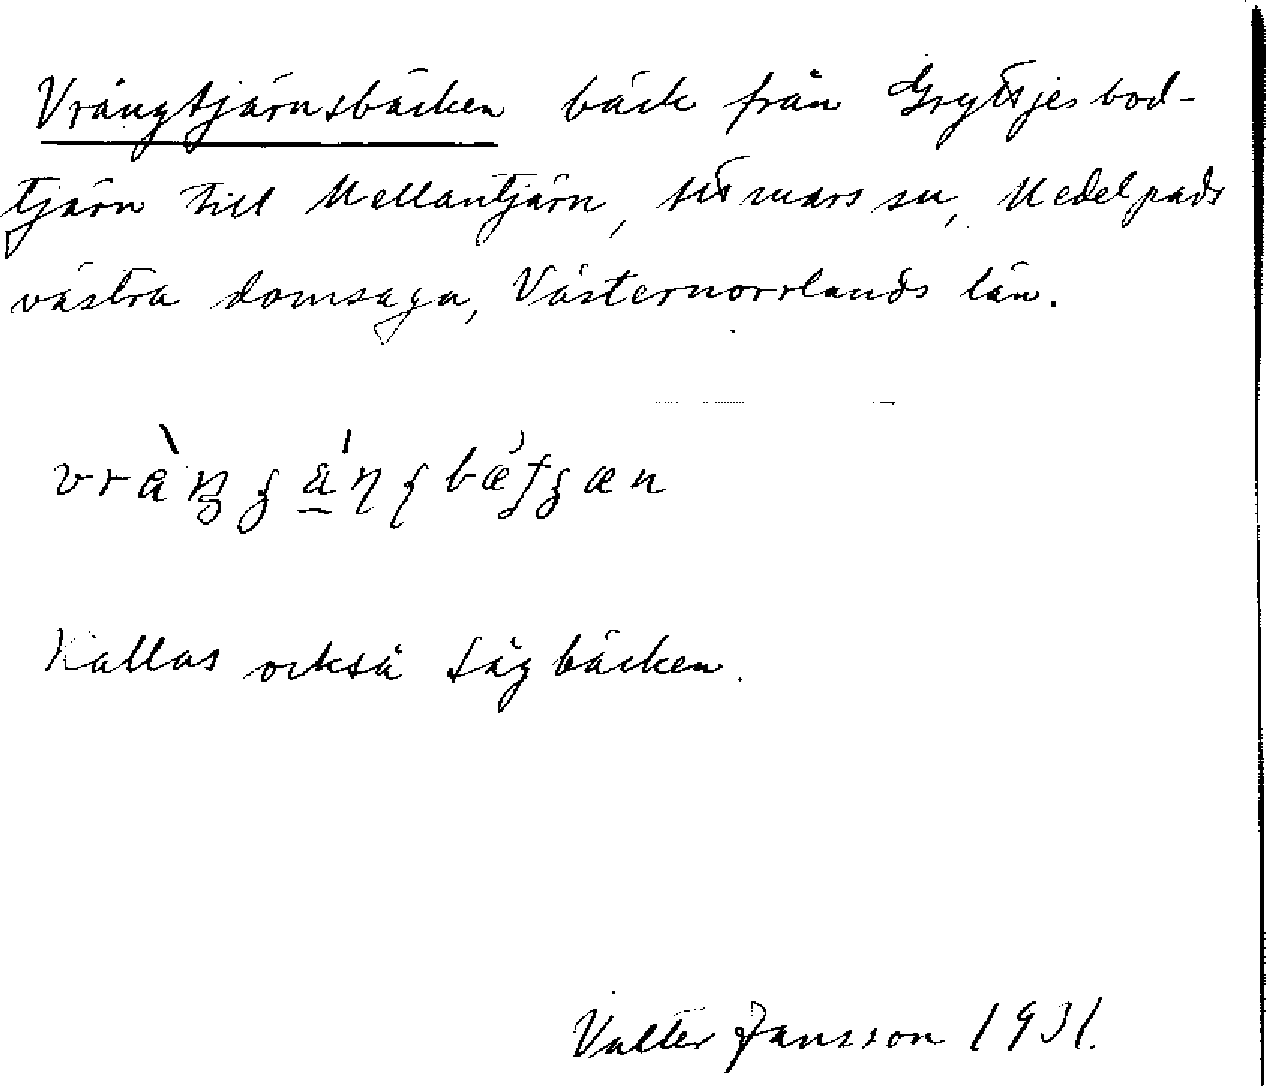 Vrångtjärnsbäcken bäck från Gryttjesbod-
tjärn till Mellantjärn, sn, Medelpads
västra domsaga, Västernorrlands län.
Kallas också Sågbäcken.
Valter Jansson 1931.